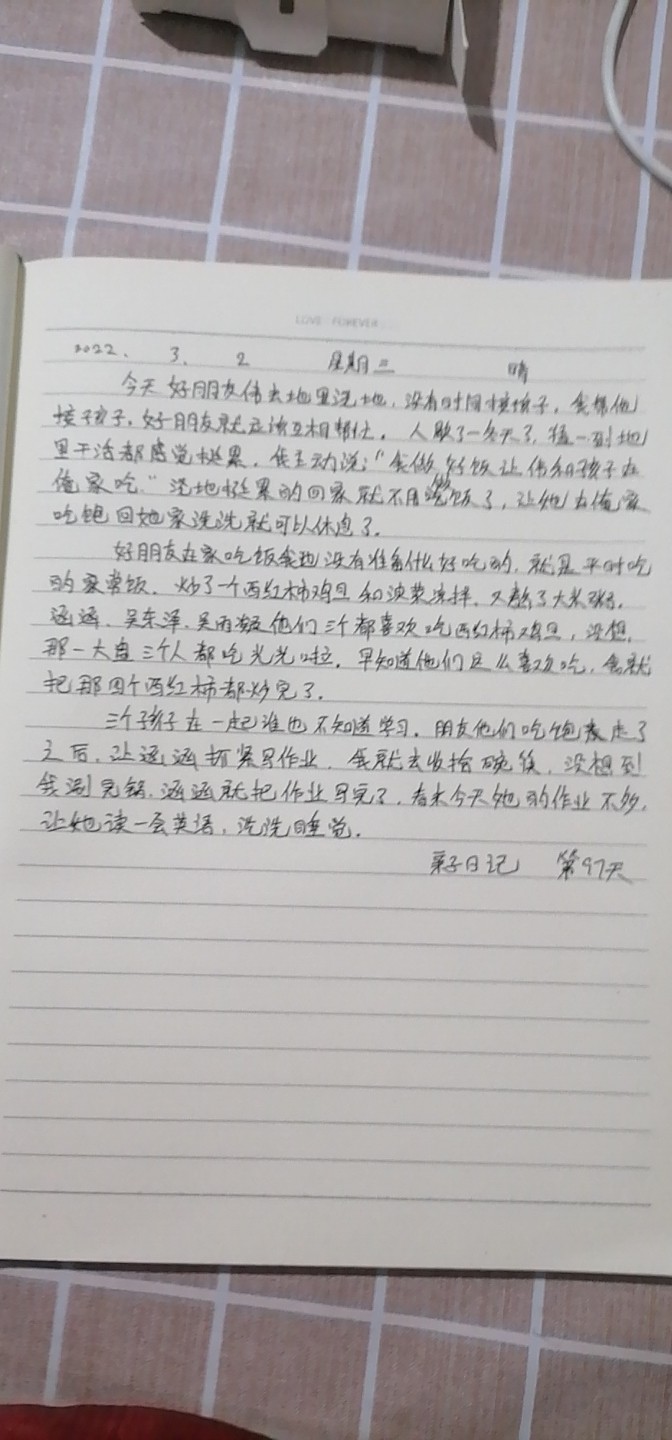 LOVE FOREVER
2022. 3. 2 星期三 晴
今天好朋友伟去地里浇地,没有时间接孩子,我帮他
接孩子,好朋友就应该互相帮忙。人歇了一冬天了,猛一到地
里干活都感觉挺累。我主动说:“我做好饭让伟和孩子在
俺家吃。”浇地挺累的回家就不用做饭了,让她在俺家
吃饱回她家洗洗就可以休息了。
好朋友在家吃饭我也没有准备什么好吃的,就是平时吃
的家常饭。炒了一个西红柿鸡旦和菠菜凉拌,又熬了大米粥。
涵涵、吴东泽、吴雨 他们三个都喜欢吃西红柿鸡旦,没想,
那一大盘三个人都吃光光啦。早知道他们这么喜欢吃,我就
把那四个西红柿都炒完了。
三个孩子在一起谁也不知道学习。朋友他们吃饱走了
之后,让涵涵抓紧写作业,我就去收拾碗筷,没想到
我涮完锅,涵涵就把作业写完了,看来今天她的作业不多,
让她读一会英语,洗洗睡觉。
亲子日记 第97天